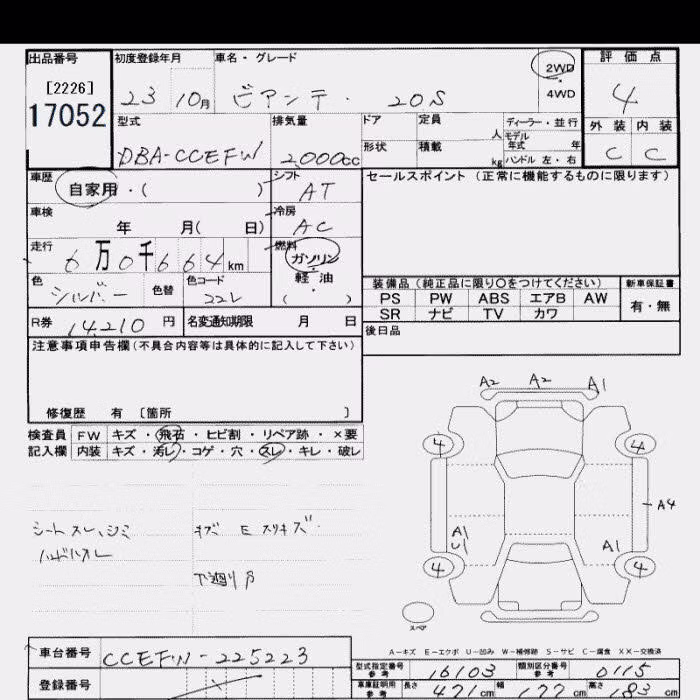 出品番号 初度登録年月 車名・グレード 2WD ・ 4WD 評価点
[2226] 17052 23 10月 ビアンテ・ 20S 4
型式 排気量 ドア 定員 人 ディーラー・並行 外装 内装
モデル年式 年
DBA-CCEFW 2,000cc 形状 積載 kg ハンドル 左・右 C C
車歴 自家用・( ) シフト AT セールスポイント (正常に機能するものに限ります)
車検 年 月( 日) 冷房 AC
走行 6万0千664km 燃料 ガソリン・軽油 ( )
色 シルバー 色替 色コード 22L
装備品(純正品に限り○をつけてください) 新車保証書
PS PW ABS エアB AW 有・無
SR ナビ TV カワ
R券 14,210 円 名変通知期限 月 日 後日品
注意事項申告欄(不具合内容等は具体的に記入して下さい)
修復歴 有 〔箇所 〕
検査員 FW キズ・飛石・ヒビ割・リペア跡・×要
記入欄 内装 キズ・汚レ・コゲ・穴・スレ・キレ・破レ
A2 A2 A1
4 4
A4
A1 U1 A1
4 4
シートスレ、シミ キズ E スリキズ
ハンドルスレ
下廻りサ
スペア
A-キズ E-エクボ U-凹み W-補修跡 S-サビ C-腐食 XX-交換済
車台番号 CCEFW-225223
型式指定番号 参考 16103 類別区分番号 参考 0115
登録番号
車庫証明用 参考 長さ 471cm 幅 177cm 高さ 183cm